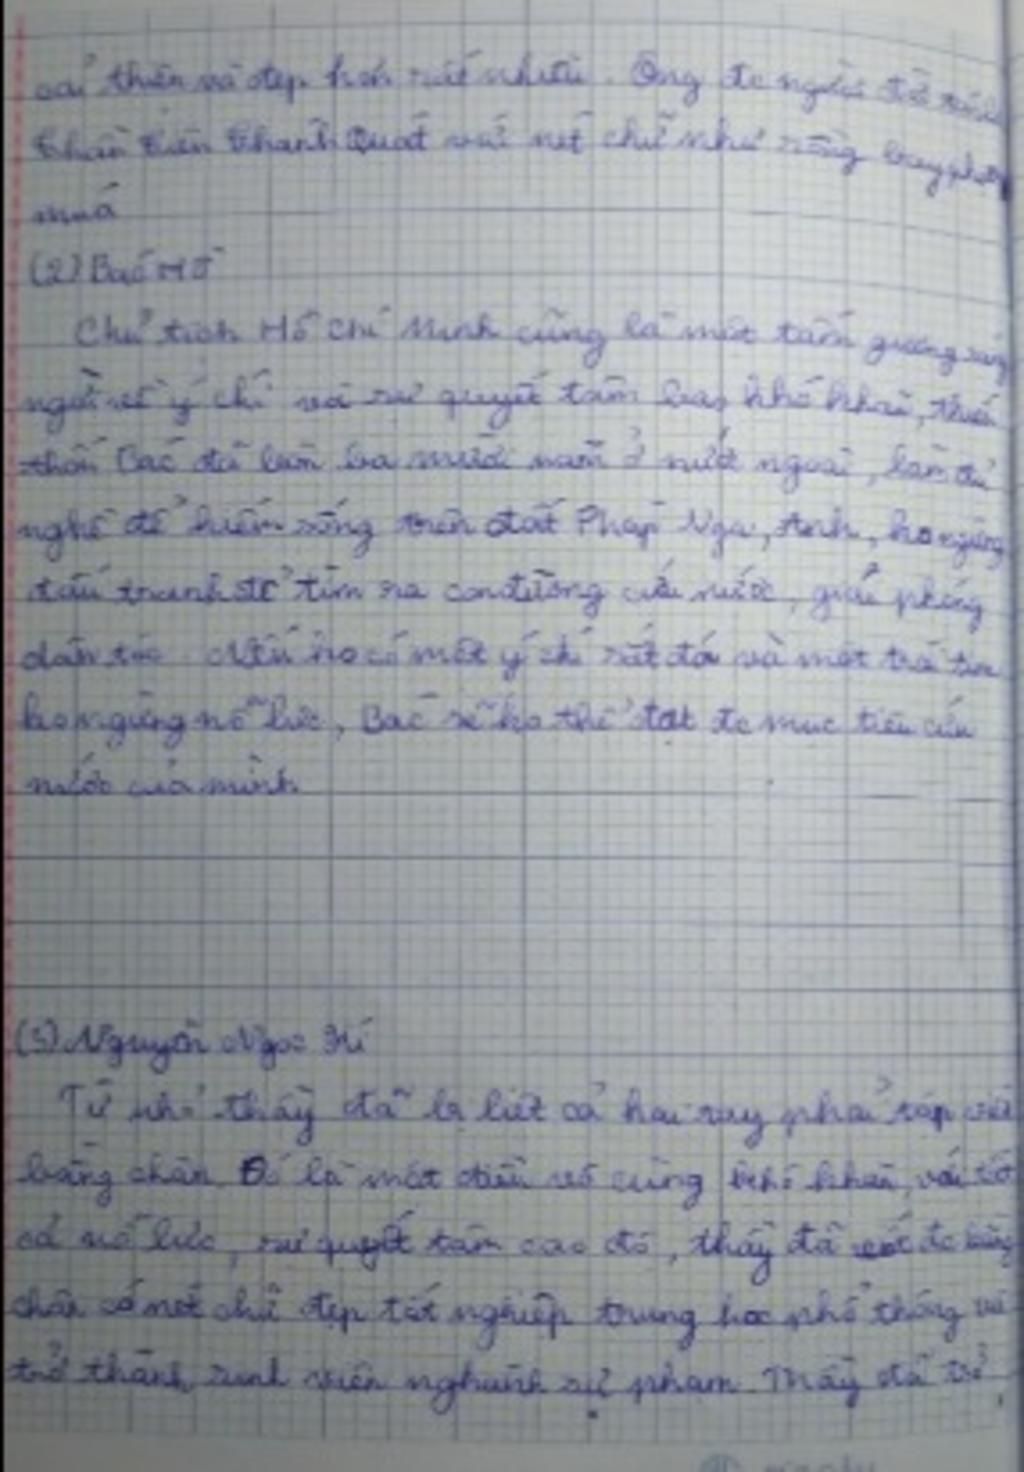 cải thiện và đẹp hơn rất nhiều. Ông đc người đời
thần Siêu thánh Quát với nét chữ như rồng bay phượng
múa
(2) Bác Hồ
Chủ tịch Hồ Chí Minh cũng là một tấm gương sáng
ngời về ý chí và sự quyết tâm khó khăn, thiếu
thốn Bác đã bôn ba mười năm ở nước ngoài, làm đủ
nghề để kiếm sống trên đất Pháp Nga, Anh, ko ngừng
đấu tranh để tìm ra con đường cứu nước, giải phóng
dân tộc. Nếu ko có một ý chí sắt đá và một trái tim
ko ngừng nỗ lực, Bác sẽ ko thể đạt đc mục tiêu cứu
nước của mình
(3) Nguyễn Ngọc Kí
Từ nhỏ thầy đã bị liệt cả hai tay phải tập viết
bằng chân. Đó là một điều vô cùng khó khăn, với tất
cả nỗ lực, sự quyết tâm cao độ, thầy đã viết đc bằng
chân có nét chữ đẹp tốt nghiệp trung học phổ thông và
trở thành sinh viên nghành sự phạm. Thầy đã trở